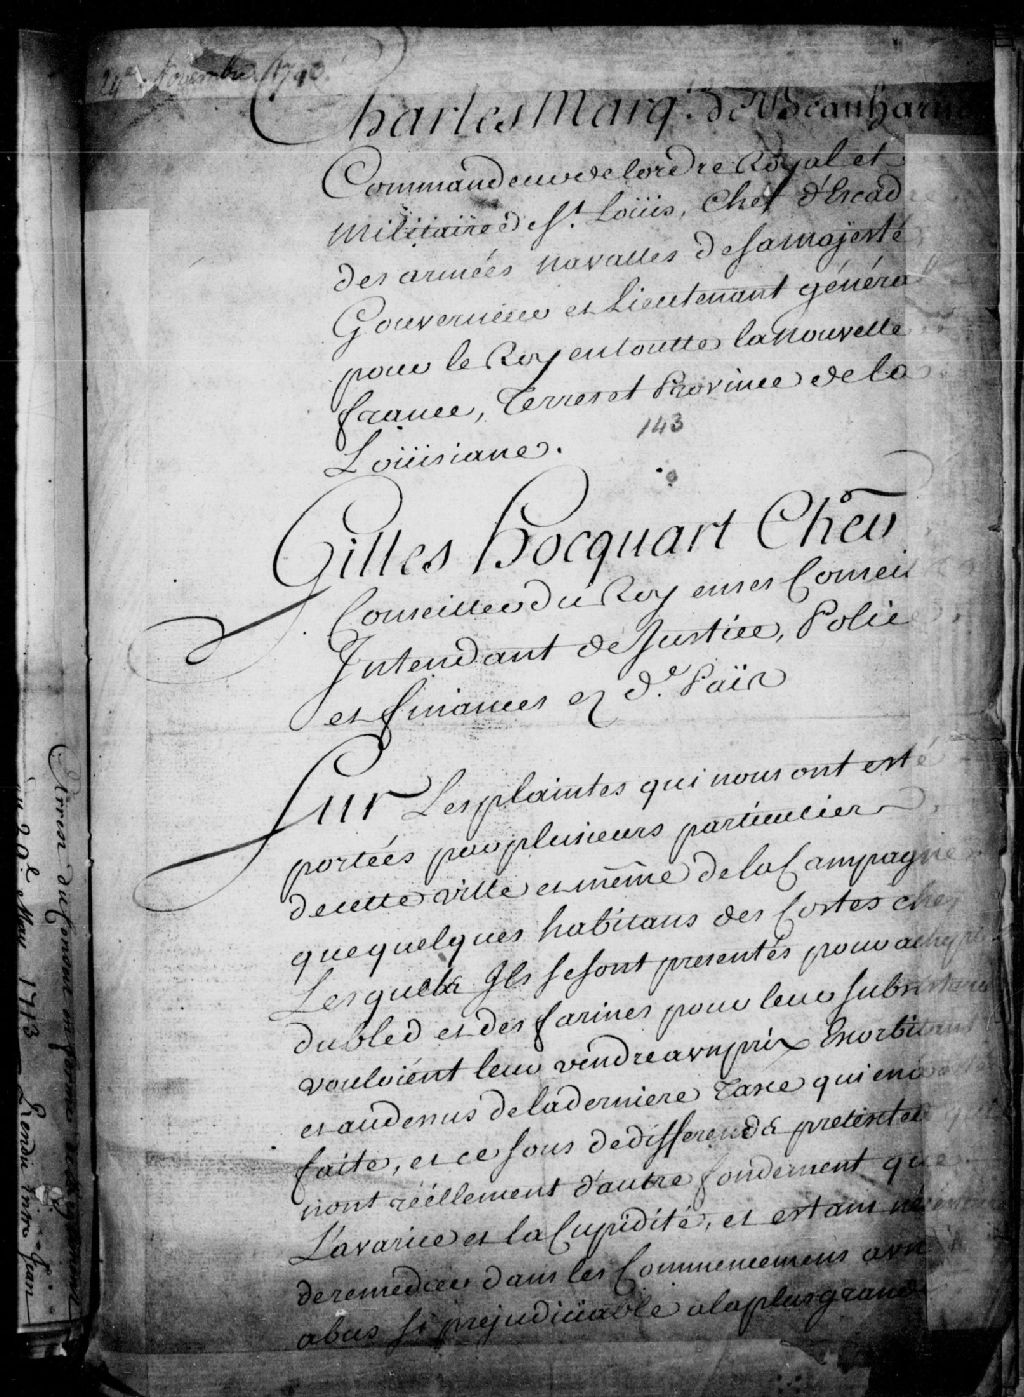 24e Novembre 1743.
Charles Marq.s de Beauharno
Commandeur de lordre Royal et
militaire de St. Loüis, Chef d'Escad
des armées navalles de sa majesté
Gouverneur et Lieutenant généra
pour le Roy en toutte la nouvelle
france, Terres et Province de la
Loüisiane.
143
Gilles hocquart Cher
Conseiller du Roy en ses Conseil
Intendant de Justice, Polic
et finances e d. Païs
Sur Les plaintes qui nous ont esté
portées par plusieurs particulier
de cette ville et même de la Campagne
que quelques habitans des Costes chez
Lesquels Ils se sont presentés pour achepter
du bled et des farines pour leur subsistance
vouloient leur vendre a un prix Exorbitant
et au dessus de la derniere Taxe qui en a esté
faite, et ce sous de differends pretextes qui
nont réellement d'autre fondement que
L'avarice et la Cupidité, et estant nécessaire
de remedier dans les Commencemens a un
abus si prejudiciable a la plus grande
du 20e May 1713
Rendu entre Jean